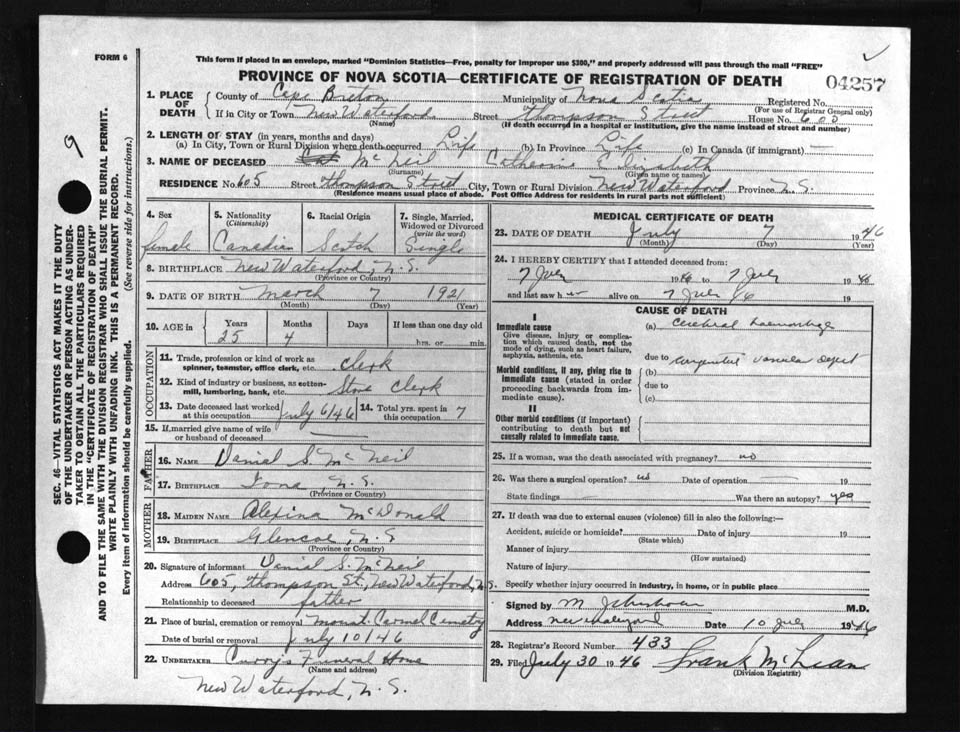 FORM 6
This form if placed in an envelope, marked "Dominion Statistics—Free, penalty for improper use $300," and properly addressed will pass through the mail "FREE"
PROVINCE OF NOVA SCOTIA—CERTIFICATE OF REGISTRATION OF DEATH
04257
9
SEC. 46—VITAL STATISTICS ACT MAKES IT THE DUTY
OF THE UNDERTAKER OR PERSON ACTING AS UNDER-
TAKER TO OBTAIN ALL THE PARTICULARS REQUIRED
IN THE "CERTIFICATE OF REGISTRATION OF DEATH"
AND TO FILE THE SAME WITH THE DIVISION REGISTRAR WHO SHALL ISSUE THE BURIAL PERMIT.
WRITE PLAINLY WITH UNFADING INK. THIS IS A PERMANENT RECORD.
Every item of information should be carefully supplied. (See reverse side for instructions.)
1. PLACE OF DEATH
County of Cape Breton Municipality of Nova Scotia Registered No.
(For use of Registrar General only)
If in City or Town New Waterford Street Thompson Street House No.
(Name) (If death occurred in a hospital or institution, give the name instead of street and number)
2. LENGTH OF STAY (in years, months and days)
(a) In City, Town or Rural Division where death occurred Life (b) In Province Life (c) In Canada (if immigrant) —
3. NAME OF DECEASED McNeil Catherine Elizabeth
(Surname) (Given name or names)
RESIDENCE No. 605 Street Thompson Street City, Town or Rural Division New Waterford Province N.S.
(Residence means usual place of abode. Post Office Address for residents in rural parts not sufficient)
4. Sex female
5. Nationality (Citizenship) Canadian
6. Racial Origin Scotch
7. Single, Married, Widowed or Divorced (write the word) Single
8. BIRTHPLACE New Waterford, N.S.
(Province or Country)
9. DATE OF BIRTH March 7 1921
(Month) (Day) (Year)
10. AGE in Years 25 Months 4 Days If less than one day old hrs. or min.
OCCUPATION
11. Trade, profession or kind of work as spinner, teamster, office clerk, etc. Clerk
12. Kind of industry or business, as cotton-mill, lumbering, bank, etc. Store Clerk
13. Date deceased last worked at this occupation July 6/46 14. Total yrs. spent in this occupation 7
15. If married give name of wife or husband of deceased —
FATHER
16. NAME Danial S McNeil
17. BIRTHPLACE Iona N.S.
(Province or Country)
MOTHER
18. MAIDEN NAME Alexina McDonald
19. BIRTHPLACE Glencoe, N.S
(Province or Country)
20. Signature of informant Danial S. McNeil
Address 605, Thompson St., New Waterford, N.S.
Relationship to deceased father
21. Place of burial, cremation or removal Mount Carmel Cemetry
Date of burial or removal July 10/46
22. UNDERTAKER Curry's Funeral Home
(Name and address)
New Waterford, N.S.
MEDICAL CERTIFICATE OF DEATH
23. DATE OF DEATH July 7 1946
(Month) (Day) (Year)
24. I HEREBY CERTIFY that I attended deceased from:
7 July 1946 to 7 July 1946
and last saw her alive on 7 July 46 19
CAUSE OF DEATH
I
Immediate cause
Give disease, injury or complication which caused death, not the mode of dying, such as heart failure, asphyxia, asthenia, etc.
(a) Cerebral haemorrhage
due to
Morbid conditions, if any, giving rise to immediate cause (stated in order proceeding backwards from immediate cause).
(b)
due to
(c)
II
Other morbid conditions (if important) contributing to death but not causally related to immediate cause.
25. If a woman, was the death associated with pregnancy? no
26. Was there a surgical operation? no Date of operation — 19
State findings — Was there an autopsy? yes
27. If death was due to external causes (violence) fill in also the following:—
Accident, suicide or homicide? Date of injury 19
(State which)
Manner of injury
(How sustained)
Nature of injury
Specify whether injury occurred in industry, in home, or in public place
Signed by M M.D.
Address Date 10 July 1946
28. Registrar's Record Number 433
29. Filed July 30 1946 Frank McLean
(Division Registrar)